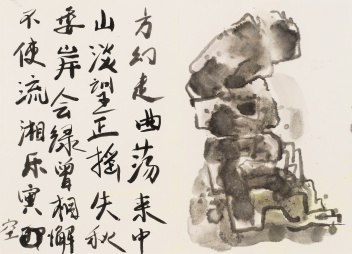 方幻走曲荡来中
山淡望正摇失秋
委岸会绿曾桐懈
不使流湘乐寅
空